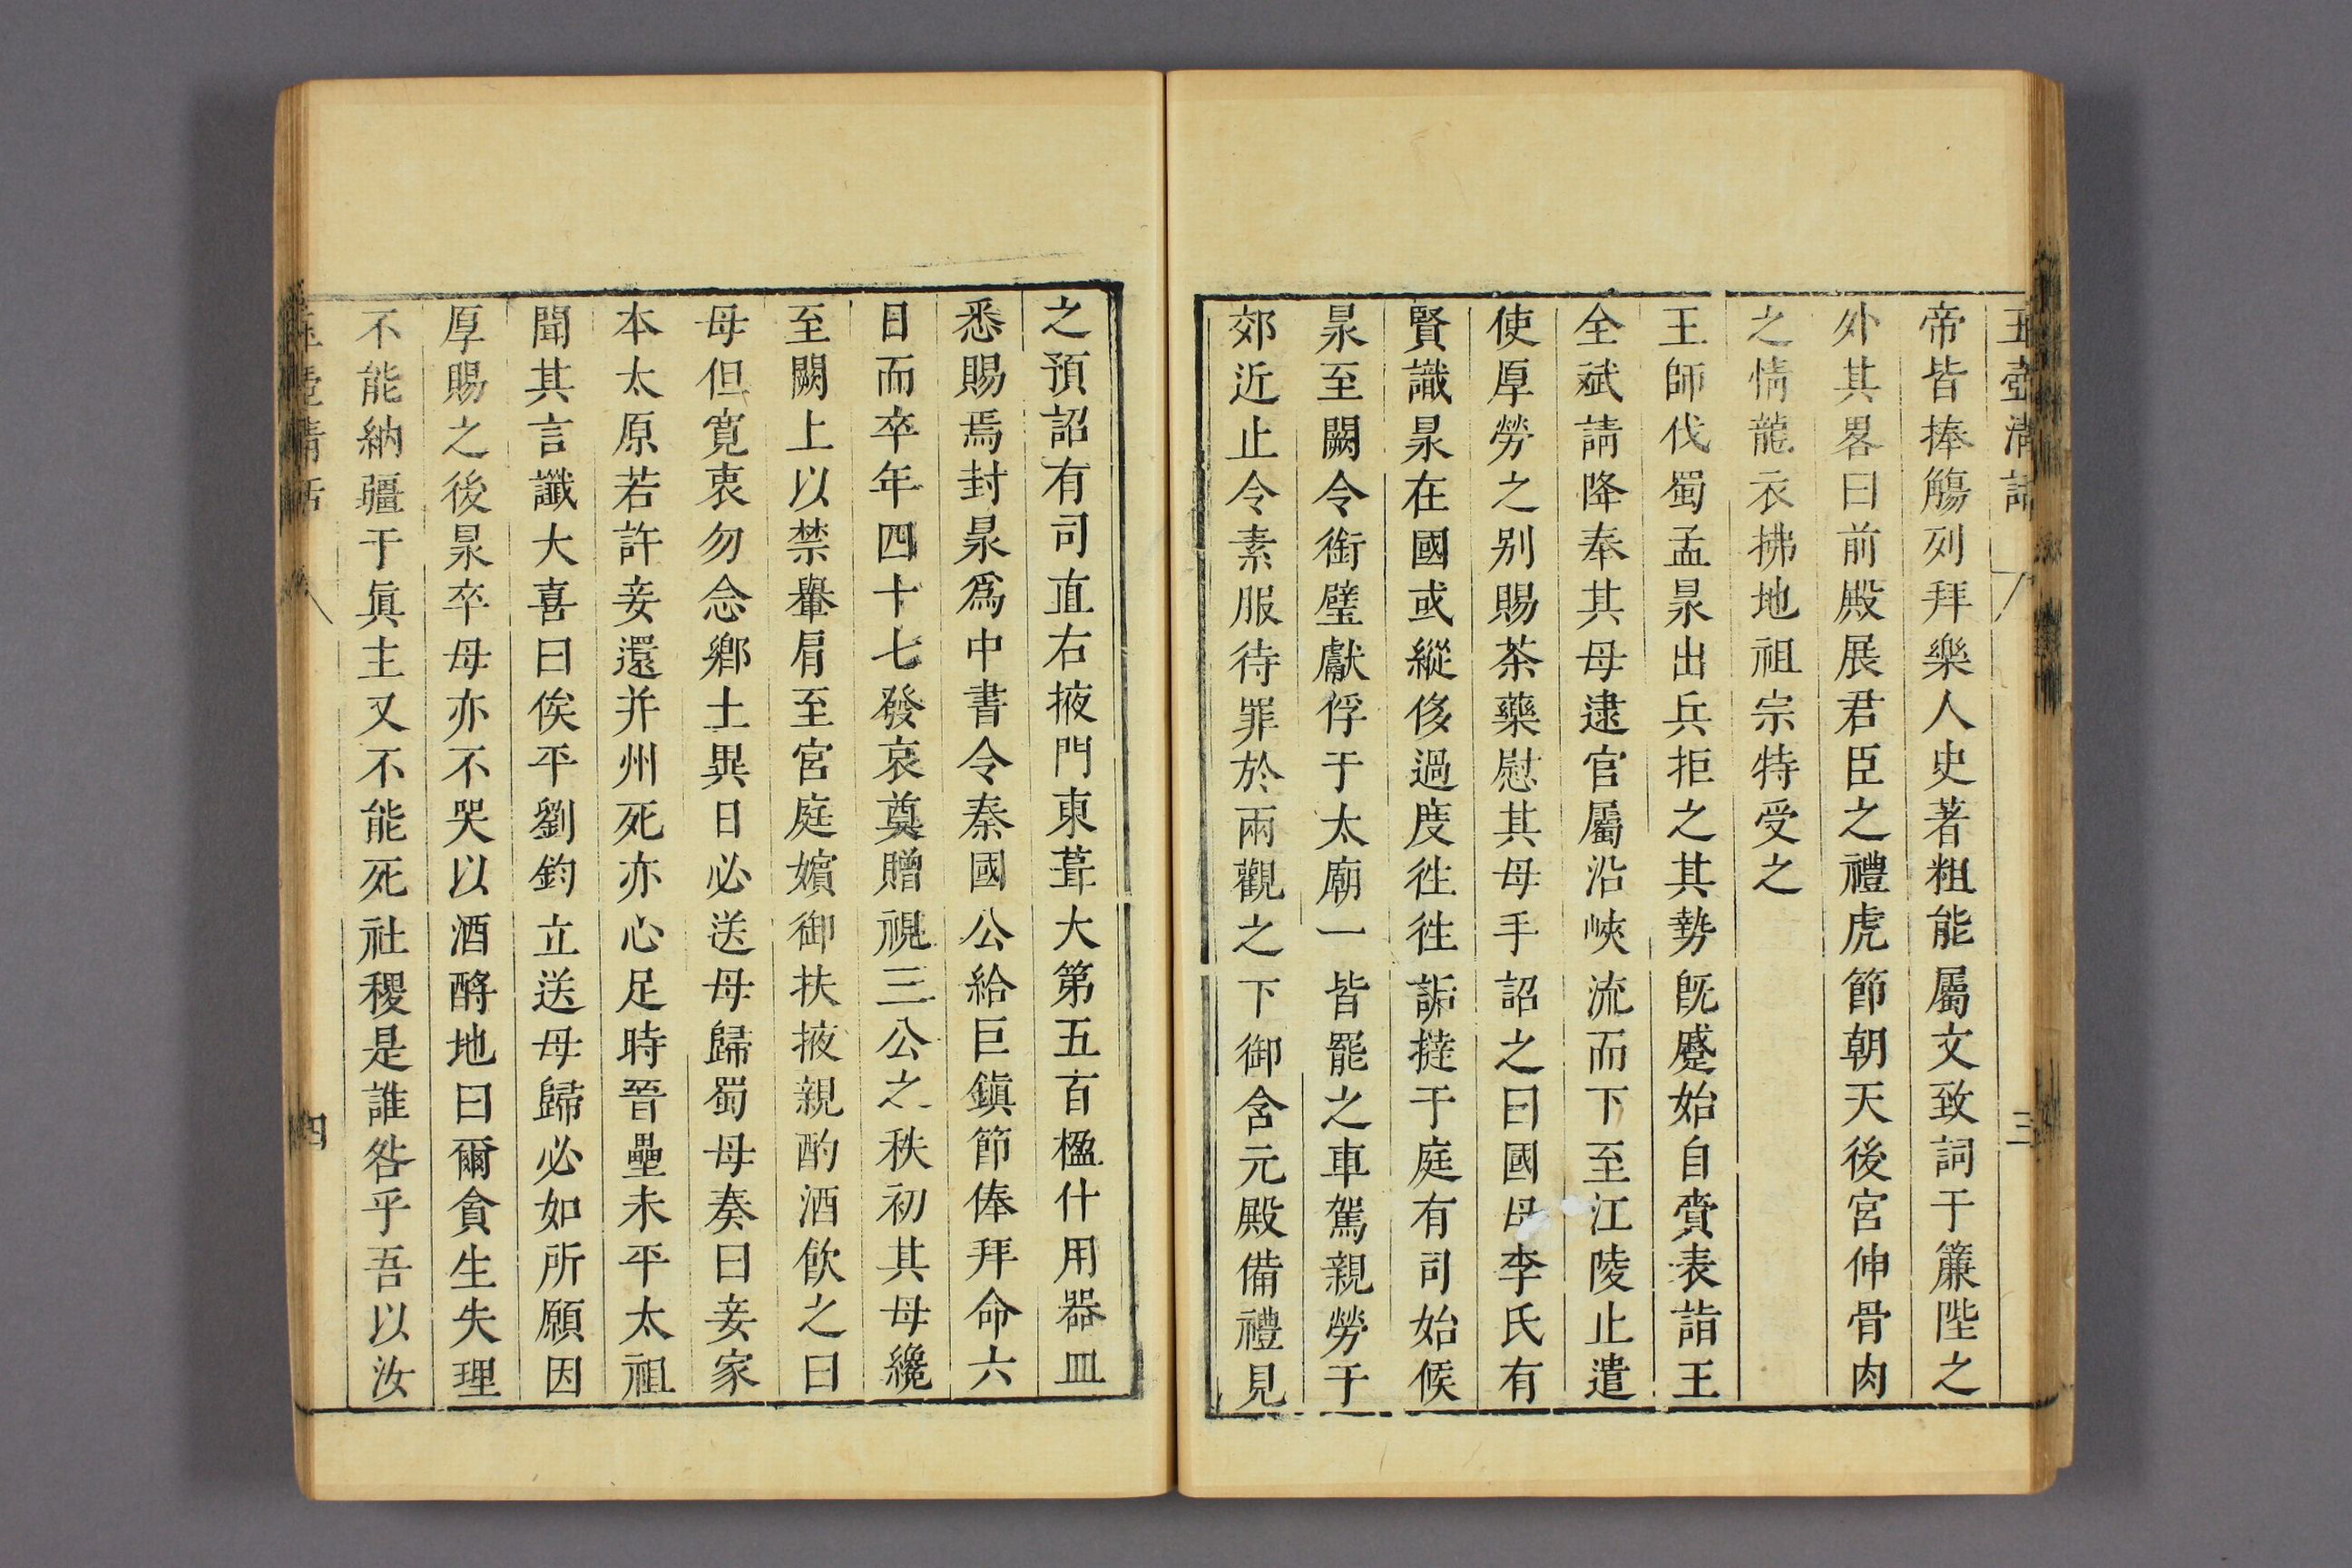 玉壺清話 三
帝皆捧觴列拜樂人史著粗能屬文致詞于簾陛之
外其畧曰前殿展君臣之禮虎節朝天後宮伸骨肉
之情龍衣拂地祖宗特受之
王師伐蜀孟昶出兵拒之其勢旣蹙始自賫表詣王
全斌請降奉其母逮官屬沿峽流而下至江陵止遣
使厚勞之别賜茶藥慰其母手詔之曰國母李氏有
賢識昶在國或縱侈過度徃徃詬撻于庭有司始候
昶至闕令銜璧獻俘于太廟一皆罷之車駕親勞于
郊近止令素服待罪於兩觀之下御含元殿備禮見
之預詔有司直右掖門東葺大第五百楹什用器皿
悉賜焉封昶爲中書令秦國公給巨鎭節俸拜命六
日而卒年四十七發哀奠贈視三公之秩初其母纔
至闕上以禁轝肩至宮庭嬪御扶掖親酌酒飲之曰
母但寛衷勿念鄉土異日必送母歸蜀母奏曰妾家
本太原若許妾還并州死亦心足時晉壘未平太祖
聞其言讖大喜曰俟平劉鈞立送母歸必如所願因
厚賜之後昶卒母亦不哭以酒酹地曰爾貪生失理
不能納疆于眞主又不能死社稷是誰咎乎吾以汝
玉壺清話 四